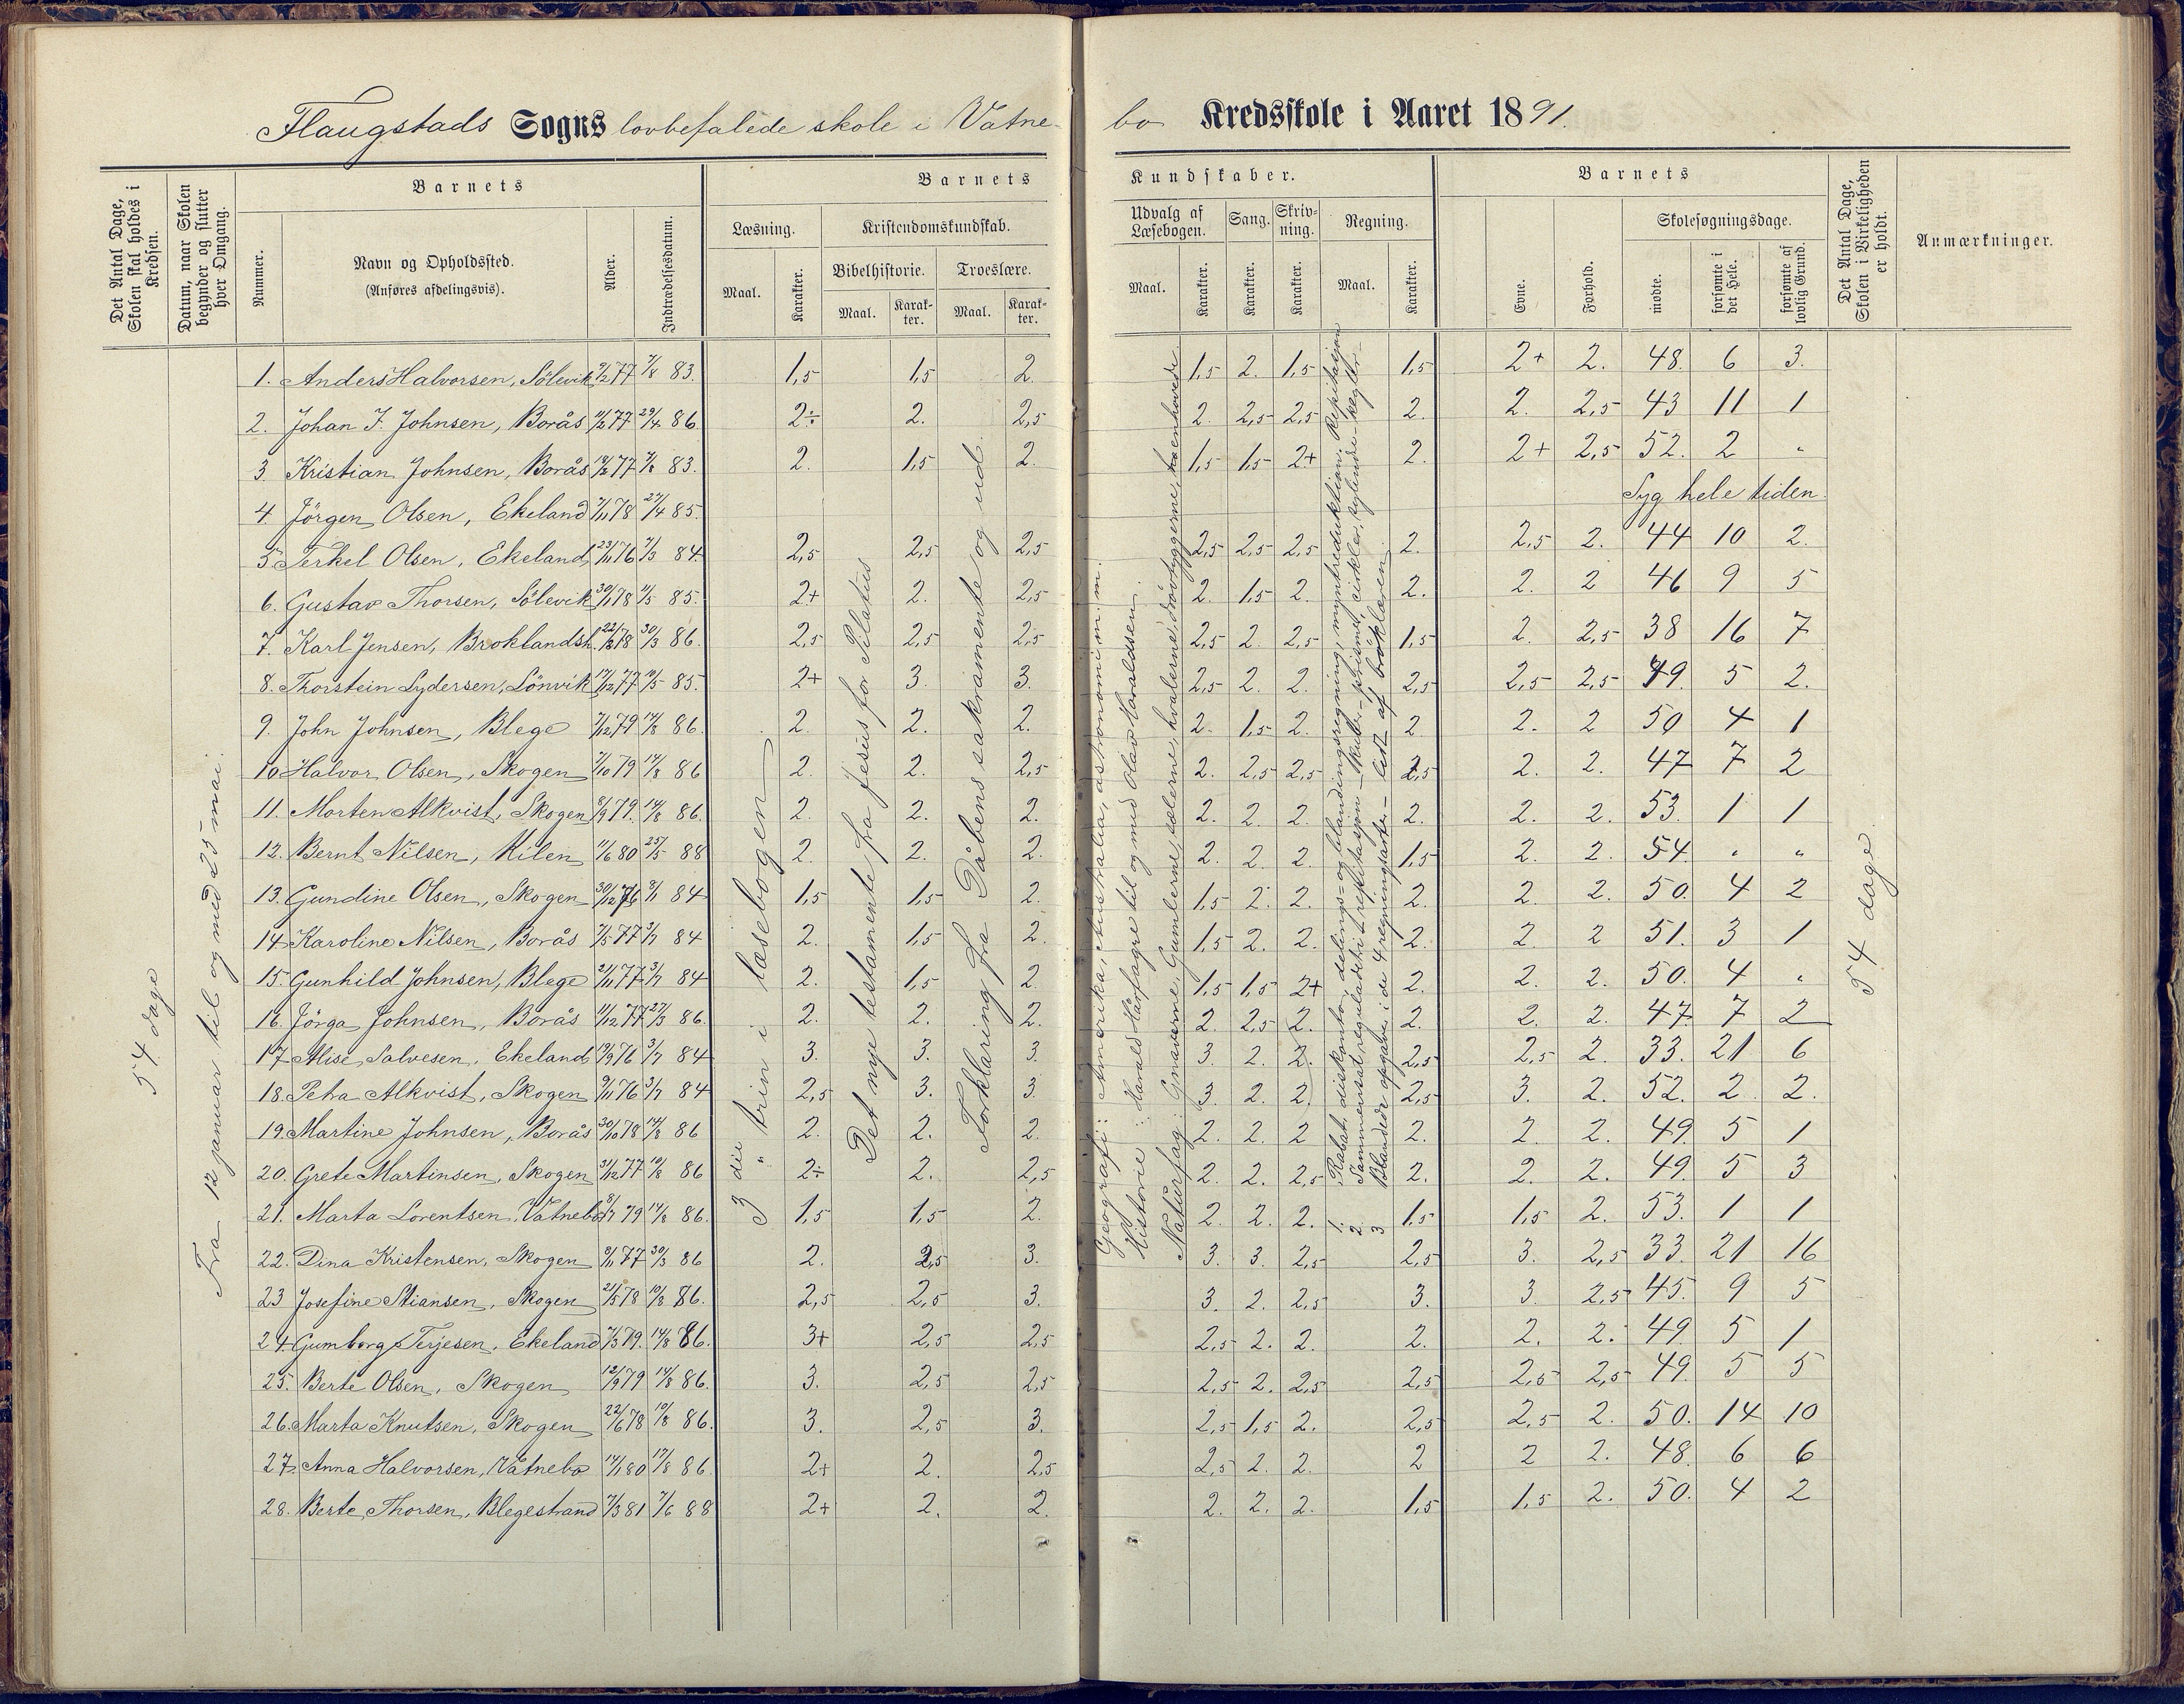 Flaugstads Sogns lovbefalede skole i Vatne-
bo Kredsskole i Aaret 1891.
Det Antal Dage, Skolen skal holdes i Kredsen.
Datum, naar Skolen begynder og slutter hver Omgang.
Barnets
Nummer.
Navn og Opholdssted.
(Anføres afdelingsvis).
Alder.
Indtrædelsesdatum.
Barnets Kundskaber.
Læsning.
Maal.
Karakter.
Kristendomskundskab.
Bibelhistorie.
Maal.
Karakter.
Troeslære.
Maal.
Karakter.
Udvalg af Læsebogen.
Maal.
Karakter.
Sang.
Karakter.
Skrivning.
Karakter.
Regning.
Maal.
Karakter.
Barnets
Evne.
Forhold.
Skolesøgningsdage.
mødte.
forsømte i det Hele.
forsømte af lovlig Grund.
Det Antal Dage, Skolen i Virkeligheden er holdt.
Anmærkninger.
54 dage
Fra 12 januar til og med 25 mai.
3 die trin i læsebogen
Det nye testamente fra Jesus for Pilatus
Forklaring fra Dåbens sakramente og ud.
Geografi: Amerika, Australia, astronomi m. m.
Historie: Harald Hårfagre til og med Olav Haraldsen.
Naturfag: Gnaverne, Gumlerne, sælerne, hvalerne, drøvtyggerne,
1. Rabat, diskonto, delings- og blandingsregning, myntreduktion. Repitasjon
2. Sammensat reguladetri
3 Blandede opgaver i de 4 regningsarter - lidt af brøklæren
54 dage
1. Anders Halvorsen, Sölevik 9/2 77 7/8 83. 1,5 1,5 2. 1,5 2. 1,5 1,5 2+ 2. 48. 6 3.
2. Johan J. Johnsen, Borås 11/2 77 29/4 86 2÷ 2. 2,5 2. 2,5 2,5 2. 2. 2,5 43 11 1
3 Kristian Johnsen, Borås 7/8 83. 2. 1,5 2. 1,5 1,5 2+ 2. 2+ 2,5 52. 2 "
4. Jörgen Olsen, Ekeland 7/11 78 27/4 85. Syg hele tiden.
5 Terkel Olsen, Ekeland 23/11 76 7/3 84. 2,5 2,5 2,5 2,5 2,5 2,5 2. 2,5 2. 44 10 2.
6. Gustav Thorsen, Sölevik 30/1 78 11/5 85. 2+ 2. 2,5 2. 1,5 2. 2. 2. 2 46 9 5
7. Karl Jensen, Broklandsh. 22/8 78 30/3 86. 2,5 2,5 2,5 2,5 2. 2,5 1,5 2. 2,5 38 16 7
8. Thorstein Lydersen, Lönvik 17/12 77 19/5 85. 2+ 3. 3. 2,5 2. 2. 2,5 2,5 2,5 49. 5 2.
9. John Johnsen, Blege 7/12 79 14/8 86. 2. 2. 2. 2. 1,5 2. 2 2. 2 50 4 1
10. Halvor Olsen, Skogen 7/10 79 14/8 86 2. 2. 2,5 2. 2,5 2,5 2,5 2. 2. 47 7 2
11. Morten Alkvist, Skogen 8/9 79. 14/8 86. 2. 2. 2. 2. 2. 2. 2. 2. 2. 53. 1 1
12. Bernt Nilsen, Kilen 11/6 80 25/5 88 2. 2. 2. 2. 2. 2. 1,5 2. 2. 54 " "
13. Gundine Olsen, Skogen 30/12 76 9/1 84 1,5 1,5 2. 1,5 2. 2. 2. 2. 2. 50. 4 2
14 Karoline Nilsen, Borås 7/5 77 3/7 84 2. 1,5 2. 1,5 2. 2. 2. 2. 2 51. 3 1
15. Gunhild Johnsen, Blege 21/11 77 3/7 84 2. 1,5 2. 1,5 1,5 2+ 2. 2. 2. 50. 4 "
16. Jörga Johnsen, Borås 11/12 77 27/3 86. 2. 2. 2. 2. 2,5 2. 2. 2. 2. 47. 7 2
17. Alise Salvesen, Ekeland 19/9 76 3/7 84 3. 3. 3. 3. 2. 2. 2,5 2,5 2. 33. 21 6
18. Petra Alkvist, Skogen 9/11 76 3/7 84 2,5 3. 3. 3. 2. 2. 2,5 3. 2. 52. 2 2.
19. Martine Johnsen, Borås 30/10 78 14/8 86 2. 2. 2. 2. 2. 2 2. 2. 2. 49. 5 1
20. Grete Martinsen, Skogen 31/12 77 10/8 86 2÷ 2. 2,5 2. 2. 2,5 2. 2. 2. 49. 5 3
21. Marta Lorentsen, Vatnebo 8/7 79 14/8 86. 1,5 1,5 2. 2. 2. 2. 1,5 1,5 2. 53. 1 1
22. Dina Kristensen, Skogen 8/11 77 30/3 86 2. 2,5 3. 3. 3. 2,5 2,5 3. 2,5 33. 21 16
23 Josefine Stiansen, Skogen 21/5 78 10/8 86. 2,5 2,5 3. 3. 2. 2,5 3. 3. 2,5 45. 9 5
24. Gumborg Terjesen, Ekeland 7/3 79. 14/8 86. 3+ 2,5 2,5 2,5 2. 2. 2. 2. 2. 49. 5 1
25. Berte Olsen, Skogen 12/9 79 14/8 86. 3. 2,5 2,5 2,5 2. 2,5 2,5 2,5 2,5 49. 5 5
26. Marta Knutsen, Skogen 22/6 78 10/8 86. 3. 2,5 3. 2,5 1,5 2. 2,5 2,5 2. 50. 14 10
27. Anna Halvorsen, Vatnebo 14/1 80 17/8 86. 2+ 2. 2,5 2,5 2. 2. 2 2 2. 48. 6 6
28. Berte Thorsen, Blegestrand 7/3 81 7/6 88 2+ 2. 2. 2. 2. 2. 1,5 1,5 2. 50. 4 2